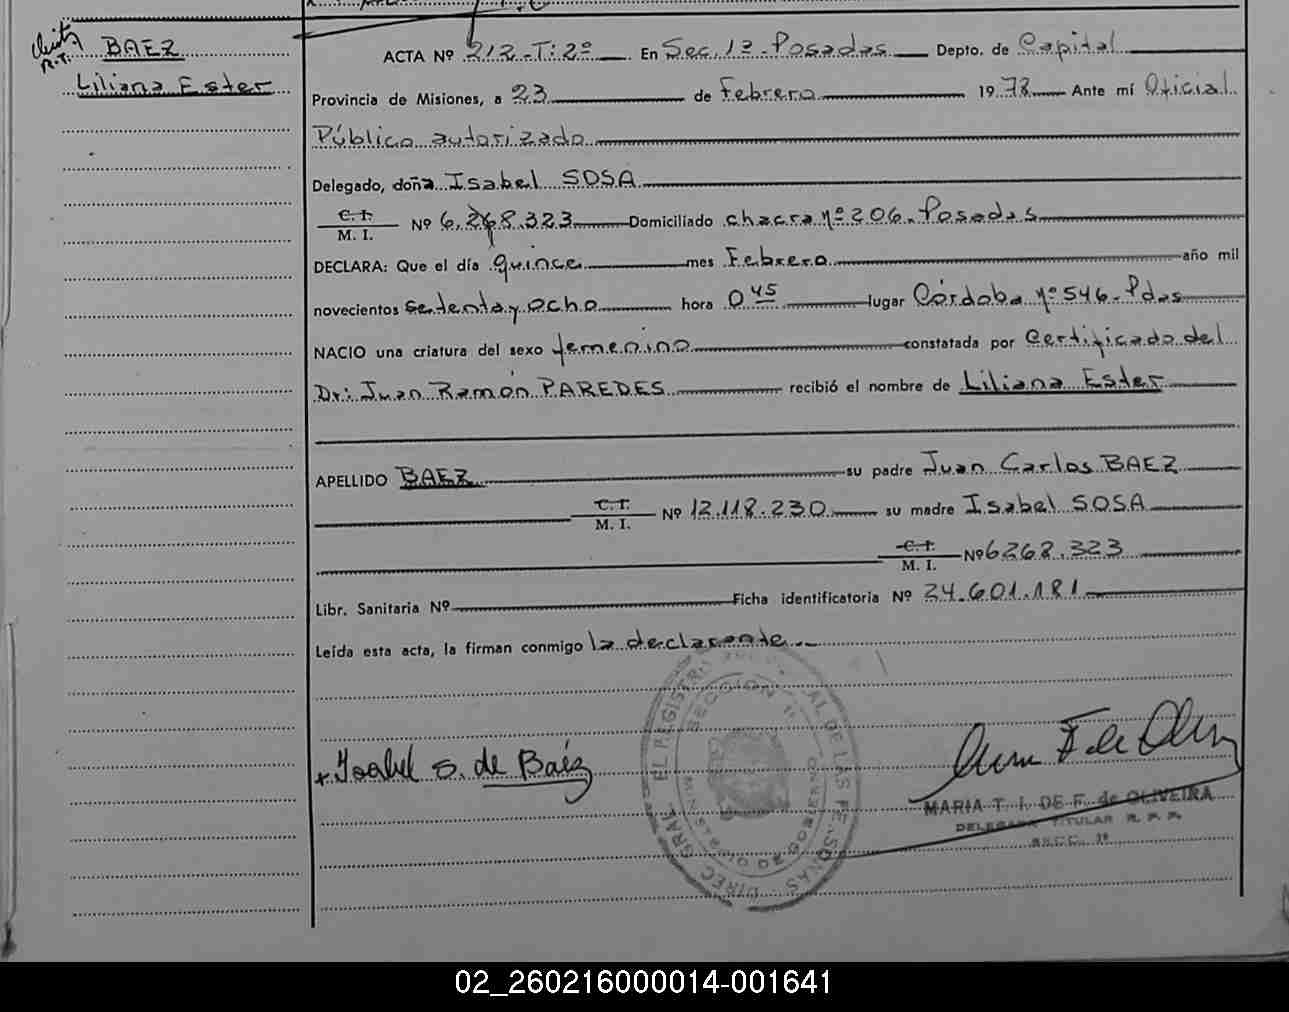 BAEZ
Liliana Ester
ACTA Nº 212-T:2º En Sec. 1ª Posadas Depto. de Capital
Provincia de Misiones, a 23 de Febrero 1978 Ante mí Oficial
Público autorizado
Delegado, doña Isabel SOSA
C. I.
M. I. Nº 6.268.323 Domiciliado chacra nº 206. Posadas
DECLARA: Que el día quince mes Febrero año mil
novecientos setenta y ocho hora 0 45 lugar Córdoba nº 546. Pdas
NACIO una criatura del sexo femenino constatada por Certificado del
Dr: Juan Ramón PAREDES recibió el nombre de Liliana Ester
APELLIDO BAEZ su padre Juan Carlos BAEZ
C. I.
M. I. Nº 12.118.230 su madre Isabel SOSA
C. I.
M. I. Nº 6268.323
Libr. Sanitaria Nº Ficha identificatoria Nº 24.601.181
Leída esta acta, la firman conmigo la declarante.
Isabel S. de Baéz
MARIA T. I. DE F. de OLIVEIRA
DELEGADA TITULAR R. P. P.
SECC. 1ª
02_260216000014-001641